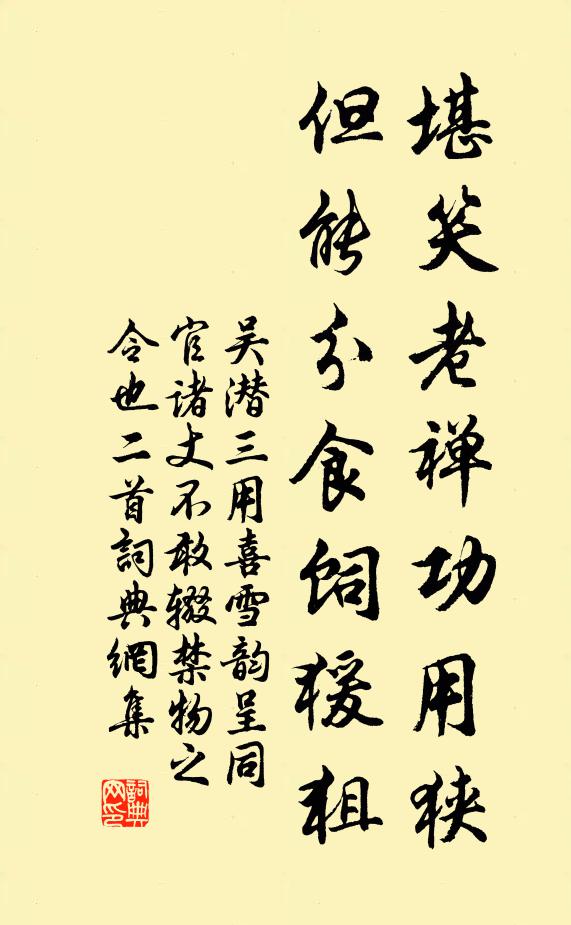 堪笑老禅功用狭
但能分食饲猨狙
吴潜三用喜雪韵呈同
官诸丈不敢辍禁物之
令也二首詞典網集
詞典网印